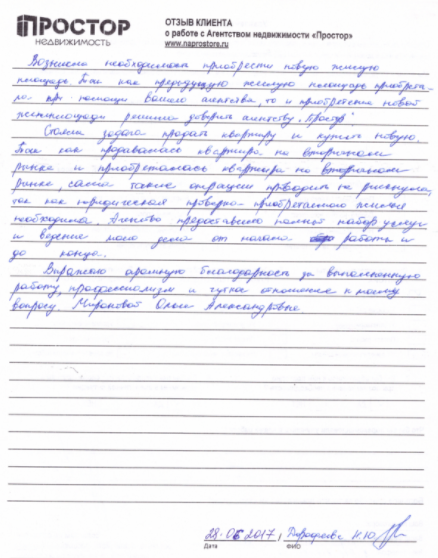 ПРОСТОР
НЕДВИЖИМОСТЬ
ОТЗЫВ КЛИЕНТА
о работе с Агентством недвижимости «Простор»
www.naprostore.ru
Возникла необходимость приобрести новую жилую
площадь. Так как предыдущую жилую площадь приобрета-
ла при помощи вашего агентства, то и приобретение новой
жилплощади решила доверить агентству „Простор"
Стояла задача продать квартиру и купить новую
Так как продавалась квартира на вторичном
рынке и приобреталась квартира на вторичном
рынке, сама такие операции проводить не рискнула,
так как юридическая проверка приобретаемого жилья
необходима. Агентство предоставило полный набор услуг
и ведение моего дела от начала работы и
до конца.
Выражаю огромную благодарность за выполненную
работу, профессионализм и чуткое отношение к моему
вопросу. Ольге Александровне
28.06.2017, Н.Ю.
Дата
ФИО